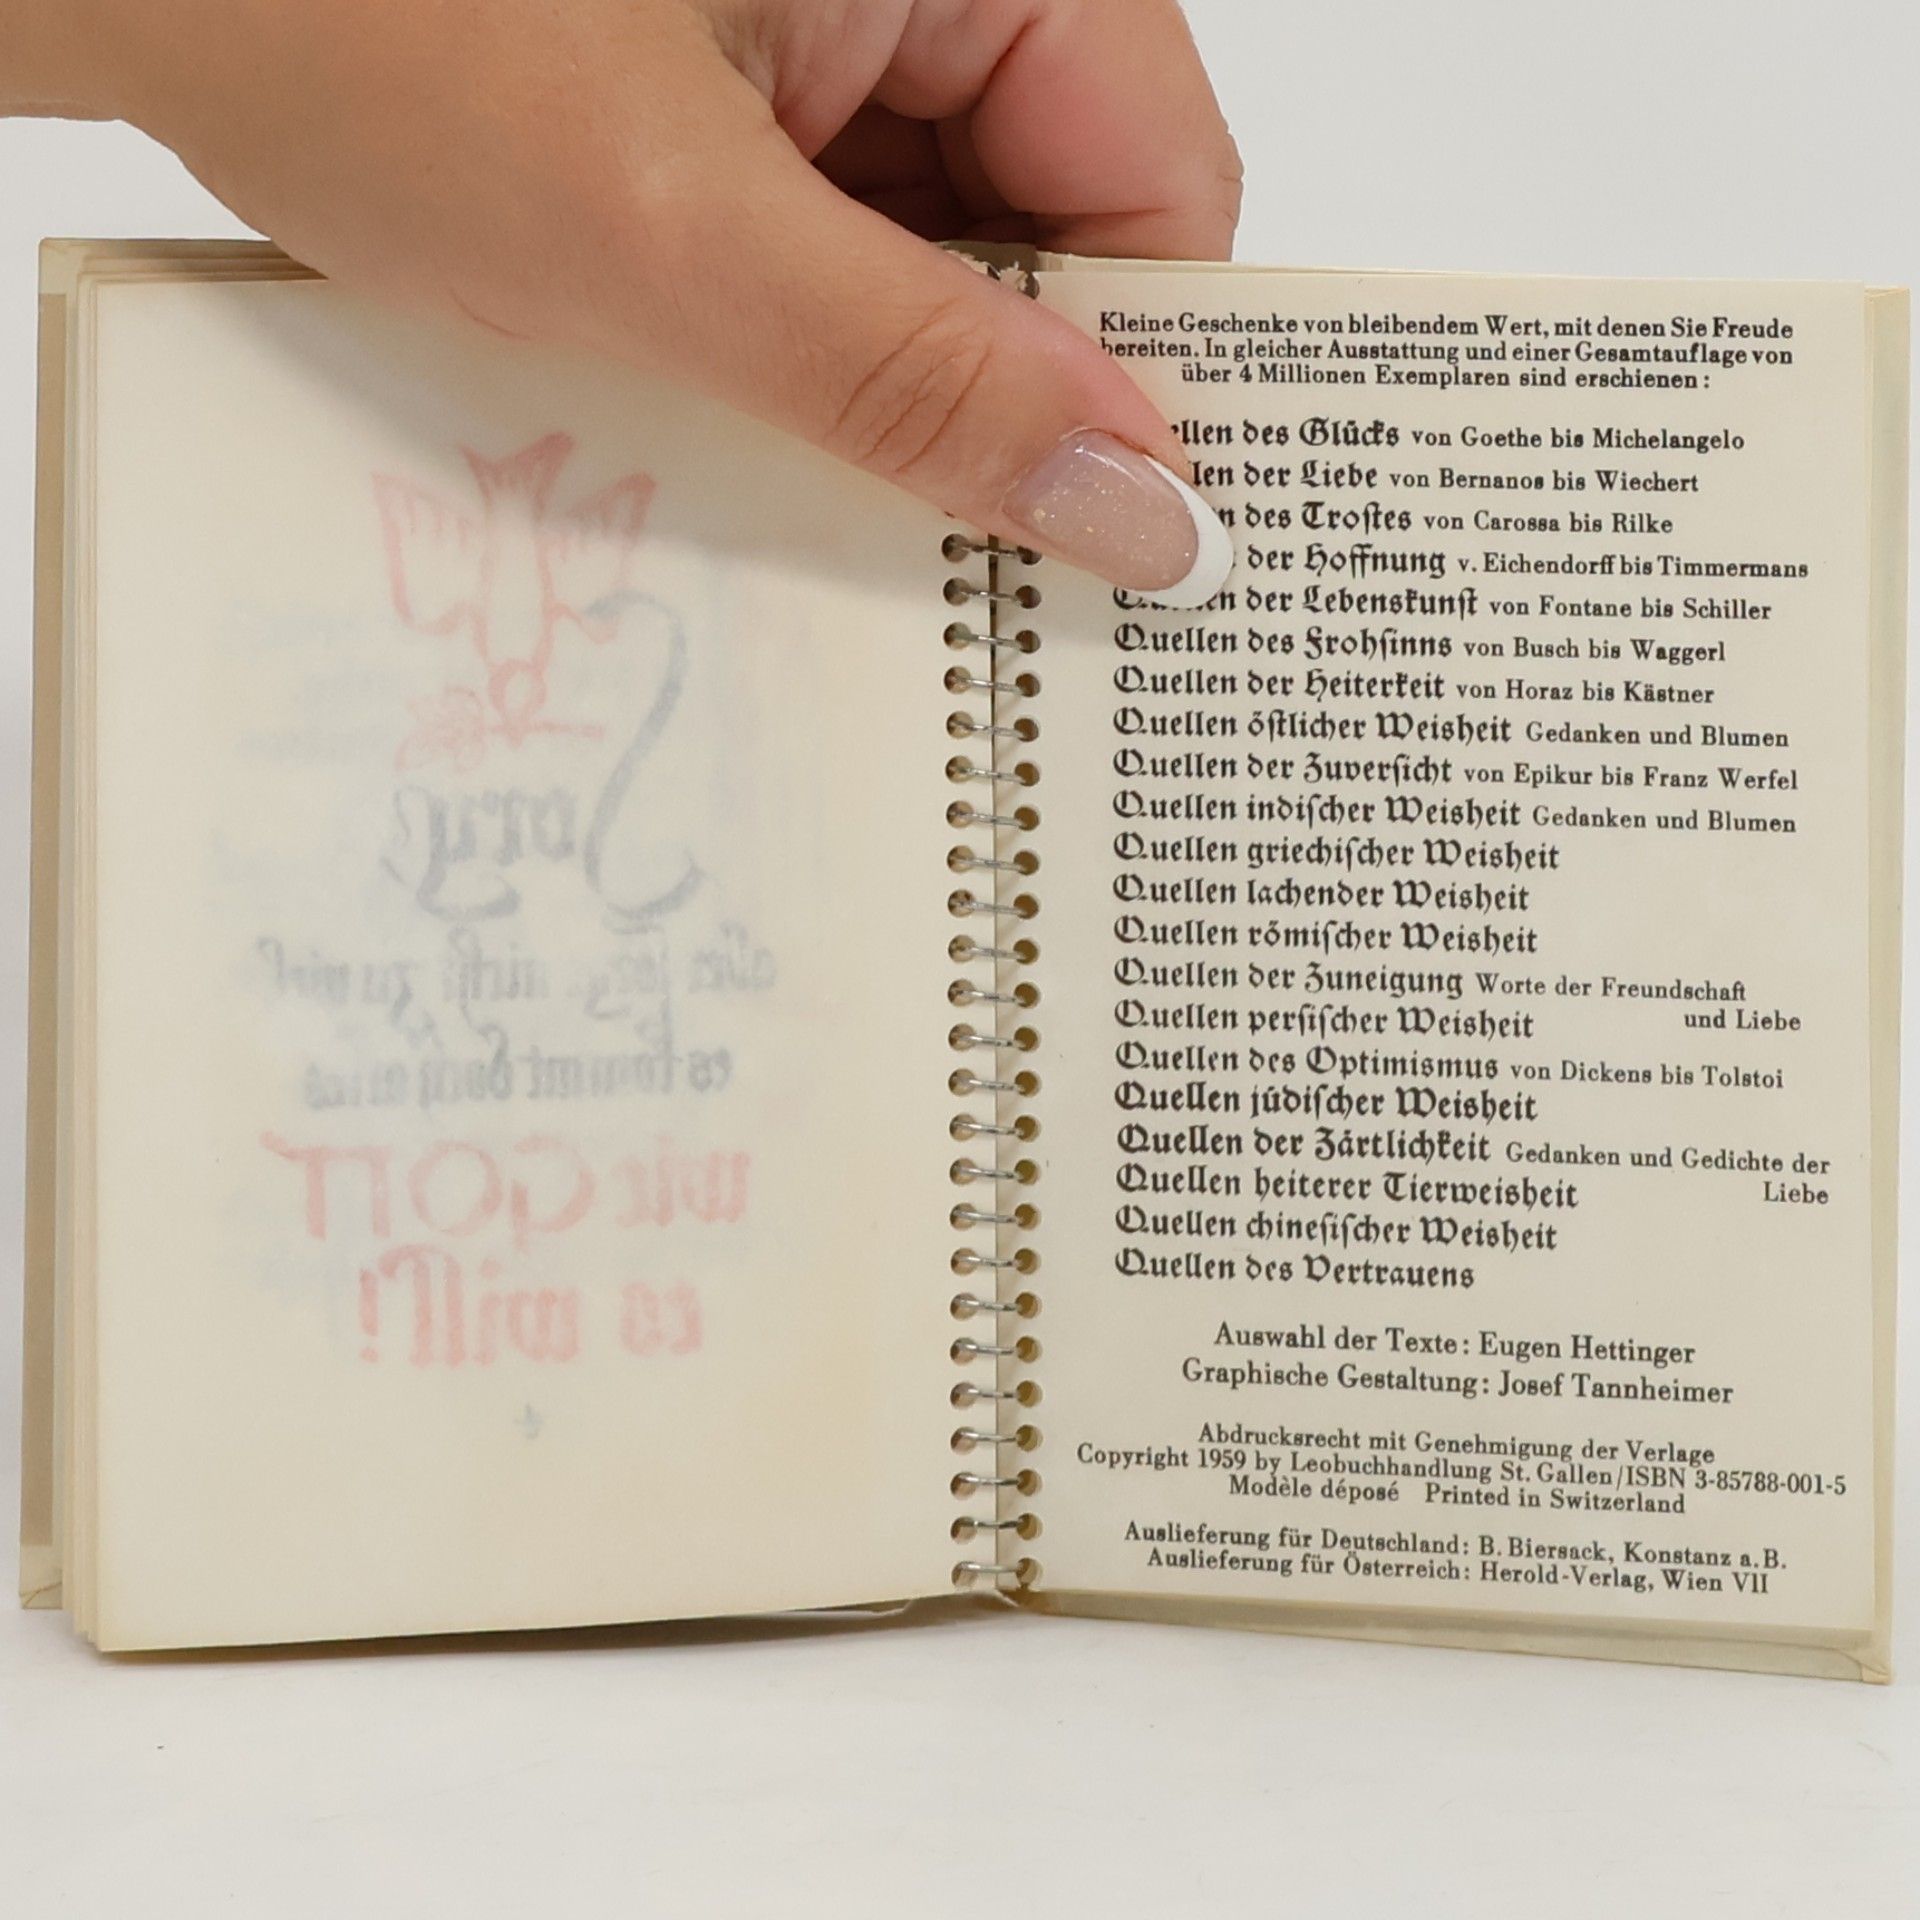 Sorg
aber sorg nicht zu viel
es kommt doch alles
wie GOTT
es will!
Kleine Geschenke von bleibendem Wert, mit denen Sie Freude
bereiten. In gleicher Ausstattung und einer Gesamtauflage von
über 4 Millionen Exemplaren sind erschienen:
des Glücks von Goethe bis Michelangelo
der Liebe von Bernanos bis Wiechert
des Trostes von Carossa bis Rilke
der Hoffnung v. Eichendorff bis Timmermans
der Lebenskunst von Fontane bis Schiller
Quellen des Frohsinns von Busch bis Waggerl
Quellen der Heiterkeit von Horaz bis Kästner
Quellen östlicher Weisheit Gedanken und Blumen
Quellen der Zuversicht von Epikur bis Franz Werfel
Quellen indischer Weisheit Gedanken und Blumen
Quellen griechischer Weisheit
Quellen lachender Weisheit
Quellen römischer Weisheit
Quellen der Zuneigung Worte der Freundschaft
und Liebe
Quellen persischer Weisheit
Quellen des Optimismus von Dickens bis Tolstoi
Quellen jüdischer Weisheit
Quellen der Zärtlichkeit Gedanken und Gedichte der
Liebe
Quellen heiterer Tierweisheit
Quellen chinesischer Weisheit
Quellen des Vertrauens
Auswahl der Texte: Eugen Hettinger
Graphische Gestaltung: Josef Tannheimer
Abdrucksrecht mit Genehmigung der Verlage
Copyright 1959 by Leobuchhandlung St. Gallen/ISBN 3-85788-001-5
Modèle déposé Printed in Switzerland
Auslieferung für Deutschland: B. Biersack, Konstanz a. B.
Auslieferung für Österreich: Herold-Verlag, Wien VII